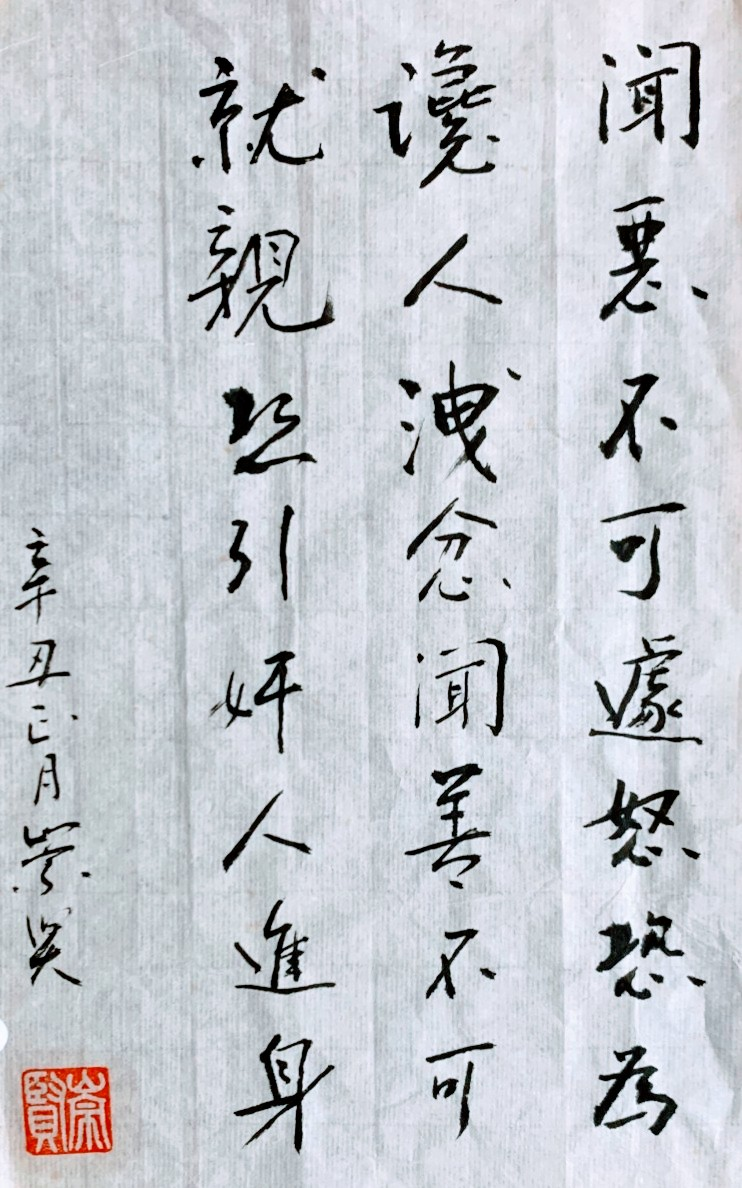 聞惡不可遽怒恐為
讒人洩忿聞善不可
就親恐引奸人進身
辛丑正月崇吳
崇賢